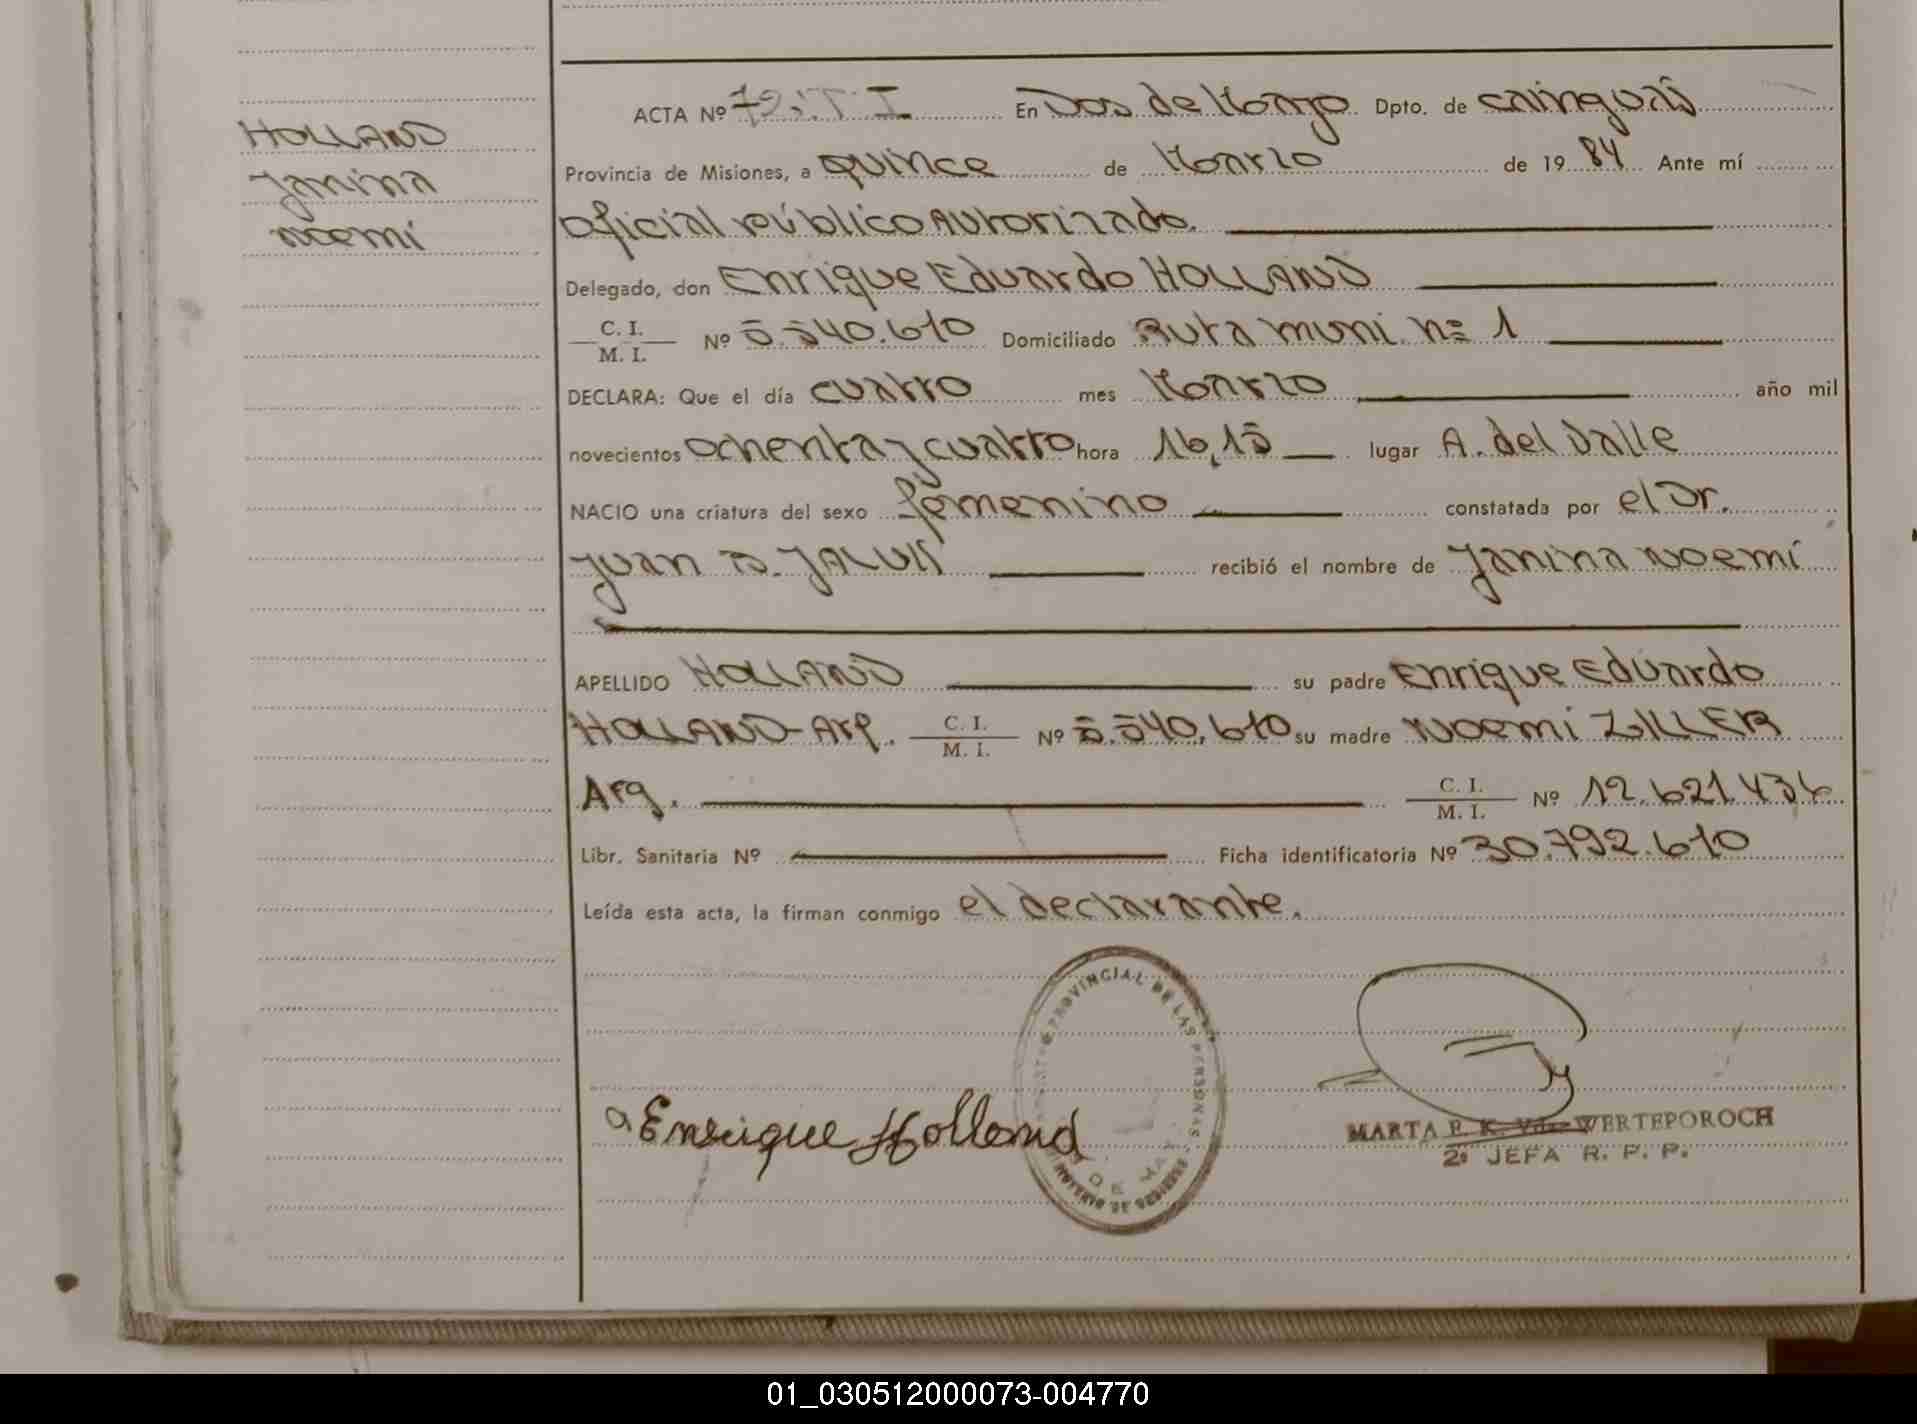 HOLLAND
Janina
Noemi
ACTA Nº 79: T. I En Dos de Marzo Dpto. de Cainguás
Provincia de Misiones, a quince de Marzo de 1984 Ante mí
Oficial Público Autorizado.
Delegado, don Enrique Eduardo HOLLAND
C. I.
M. I.
Nº 5.540.610 Domiciliado Ruta muni. nº 1
DECLARA: Que el día cuatro mes Marzo año mil
novecientos ochenta y cuatro hora 16,15 lugar A. del Valle
NACIO una criatura del sexo femenino constatada por el Dr.
Juan D. recibió el nombre de Janina Noemí
APELLIDO HOLLAND su padre Enrique Eduardo
HOLLAND-Arg. C. I. M. I. Nº 5.540.610 su madre Noemi ZILLER
Arg. C. I. M. I. Nº 12.621.436
Libr. Sanitaria Nº Ficha identificatoria Nº 30.792.610
Leída esta acta, la firman conmigo el declarante.
PROVINCIAL DE LAS PERSONAS
Enrique Holland
MARTA E. K. Vda. WERTEPOROCH
2º JEFA R. P. P.
01_030512000073-004770